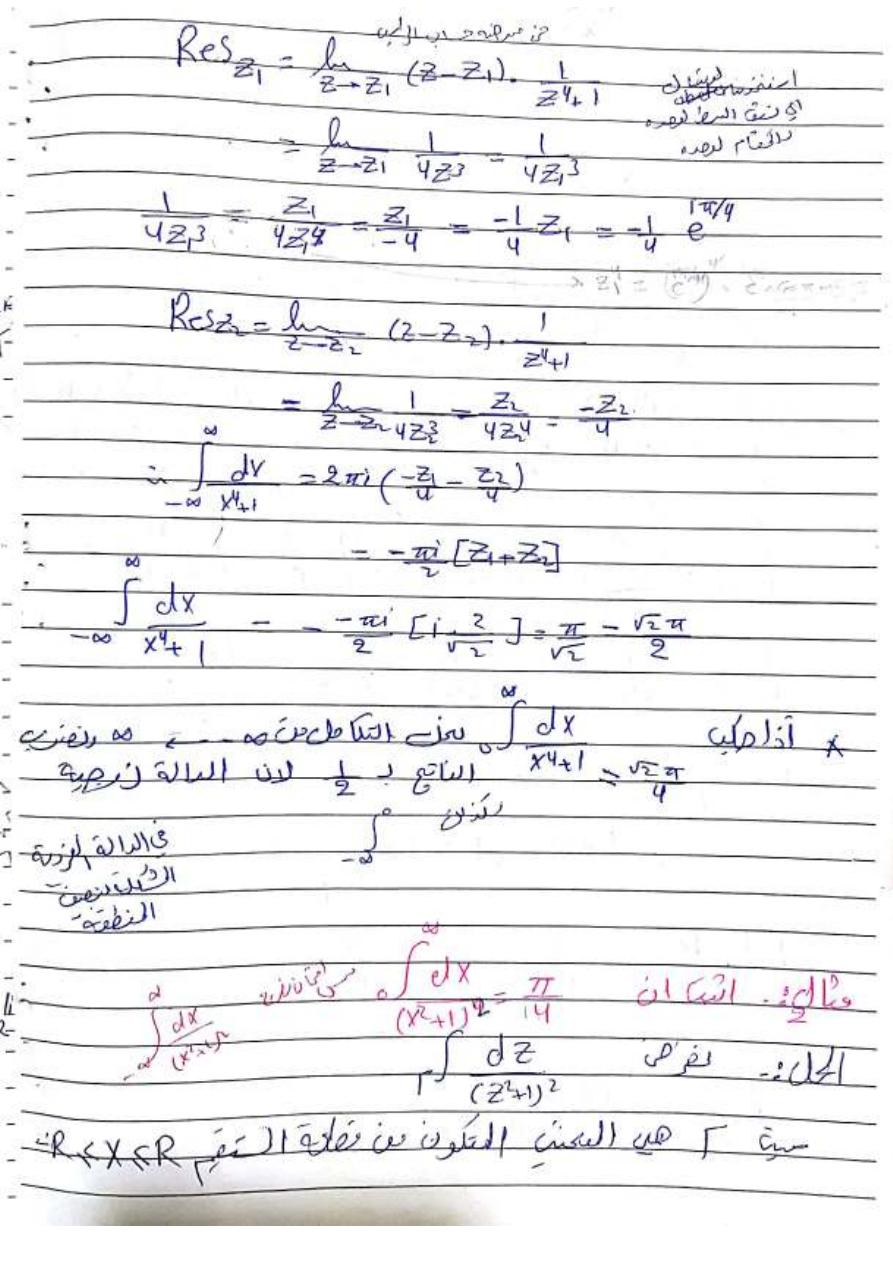 Res_{z_1} = lim_{z→z_1} (z-z_1) . 1/(z^4+1)
= lim_{z→z_1} 1/(4z^3) = 1/(4z_1^3)
1/(4z_1^3) = z_1/(4z_1^4) = z_1/(-4) = (-1/4) z_1 = -1/4 e^{iπ/4}
Res_{z_2} = lim_{z→z_2} (z-z_2) . 1/(z^4+1)
= lim_{z→z_2} 1/(4z_2^3) = z_2/(4z_2^4) = -z_2/4
∴ ∫_{-∞}^{∞} dx/(x^4+1) = 2πi (-z_1/4 - z_2/4)
= -πi/2 [z_1+z_2]
∫_{-∞}^{∞} dx/(x^4+1) = -πi/2 [i 2/√2] = π/√2 = √2π/2
* أذا طلب ∫_0^∞ dx/(x^4+1) = √2π/4 التكامل من -∞ ← ∞ ونضرب
الناتج بـ 1/2 لان الدالة زوجية
∫_{-∞}^0
في الدالة
المنطقة
مثال 2: اثبت ان ∫_0^∞ dx/(x^2+1)^2 = π/4 ∫_{-∞}^∞ dx/(x^2+1)^2
الحل:- نفرض ∫_Γ dz/(z^2+1)^2
Γ هي المنحني المتكون من قطعة المستقيم -R≤X≤R